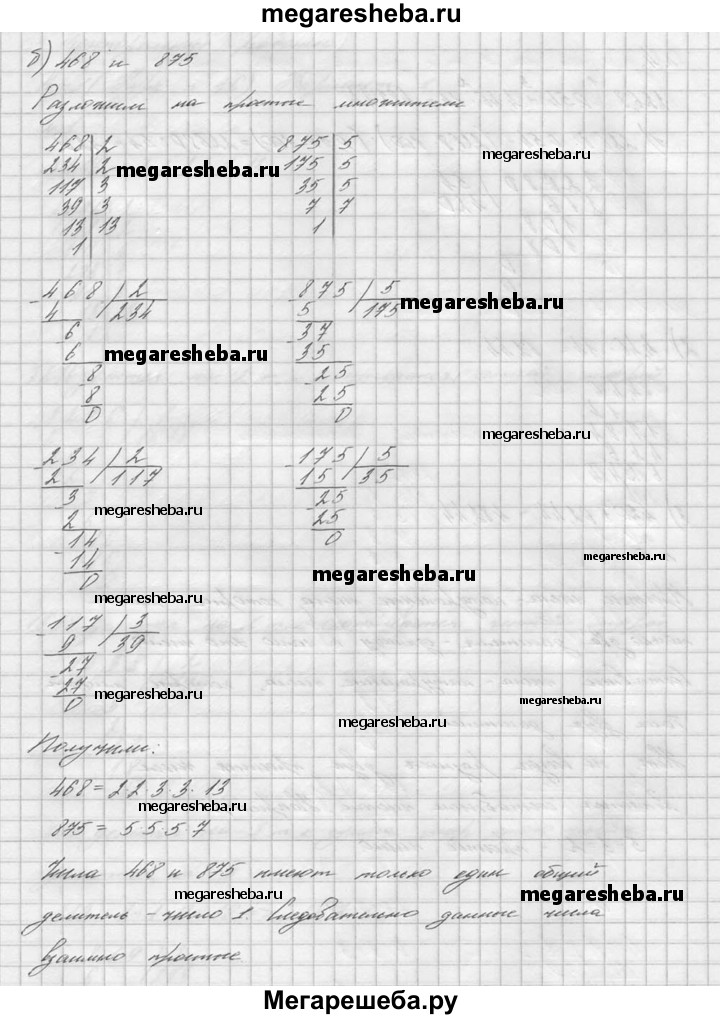 megaresheba.ru
б) 468 и 875
Разложим на простые множители
468 | 2 875 | 5
megaresheba.ru
234 | 2 175 | 5
megaresheba.ru
117 | 3 35 | 5
39 | 3 7 | 7
13 | 13 1
1
468 | 2 875 | 5
4 234 5 175
megaresheba.ru
6 37
6 35
megaresheba.ru
8 25
8 25
0 0
megaresheba.ru
234 | 2 175 | 5
2 117 15 35
3 25
2 25
megaresheba.ru
14 0
14
megaresheba.ru
0
megaresheba.ru
megaresheba.ru
117 | 3
9 39
27
27
megaresheba.ru
megaresheba.ru
0
megaresheba.ru
Получили:
468 = 2·2·3·3·13
megaresheba.ru
875 = 5·5·5·7
megaresheba.ru
Числа 468 и 875 имеют только один общий
megaresheba.ru
megaresheba.ru
делитель – число 1. Следовательно данные числа
взаимно простые
Мегарешеба.ру